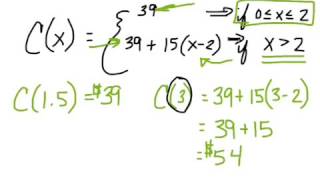 C(x) = { 39 ⇒ if 0≤x≤2
39 + 15(x-2) → if x > 2
C(1.5) = $39 C(3) = 39+15(3-2)
= 39+15
= $54